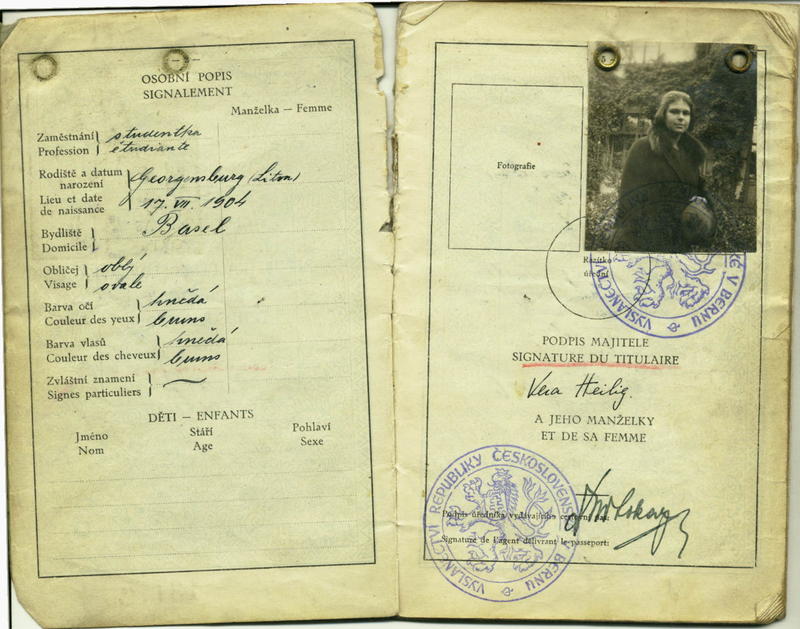 OSOBNÍ POPIS
SIGNALEMENT
Manželka — Femme
Zaměstnání studentka
Profession étudiante
Rodiště a datum narození Georgensburg (Litva)
Lieu et date de naissance 17. VII. 1904
Bydliště Basel
Domicile
Obličej oblý
Visage ovale
Barva očí hnědá
Couleur des yeux bruns
Barva vlasů hnědá
Couleur des cheveux bruns
Zvláštní znamení —
Signes particuliers
DĚTI — ENFANTS
Jméno Stáří Pohlaví
Nom Age Sexe
Fotografie
Razítko
úřední
VYSLANECTVÍ
V BERNU
PODPIS MAJITELE
SIGNATURE DU TITULAIRE
Vera Heilig.
A JEHO MANŽELKY
ET DE SA FEMME
VYSLANECTVÍ REPUBLIKY ČESKOSLOVENSKÉ V BERNU
Podpis úředníka vydávajícího cestovní pas:
Signature de l'agent délivrant le passeport: